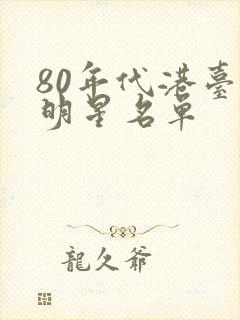 80年代港臺
明星名单
龍久爺